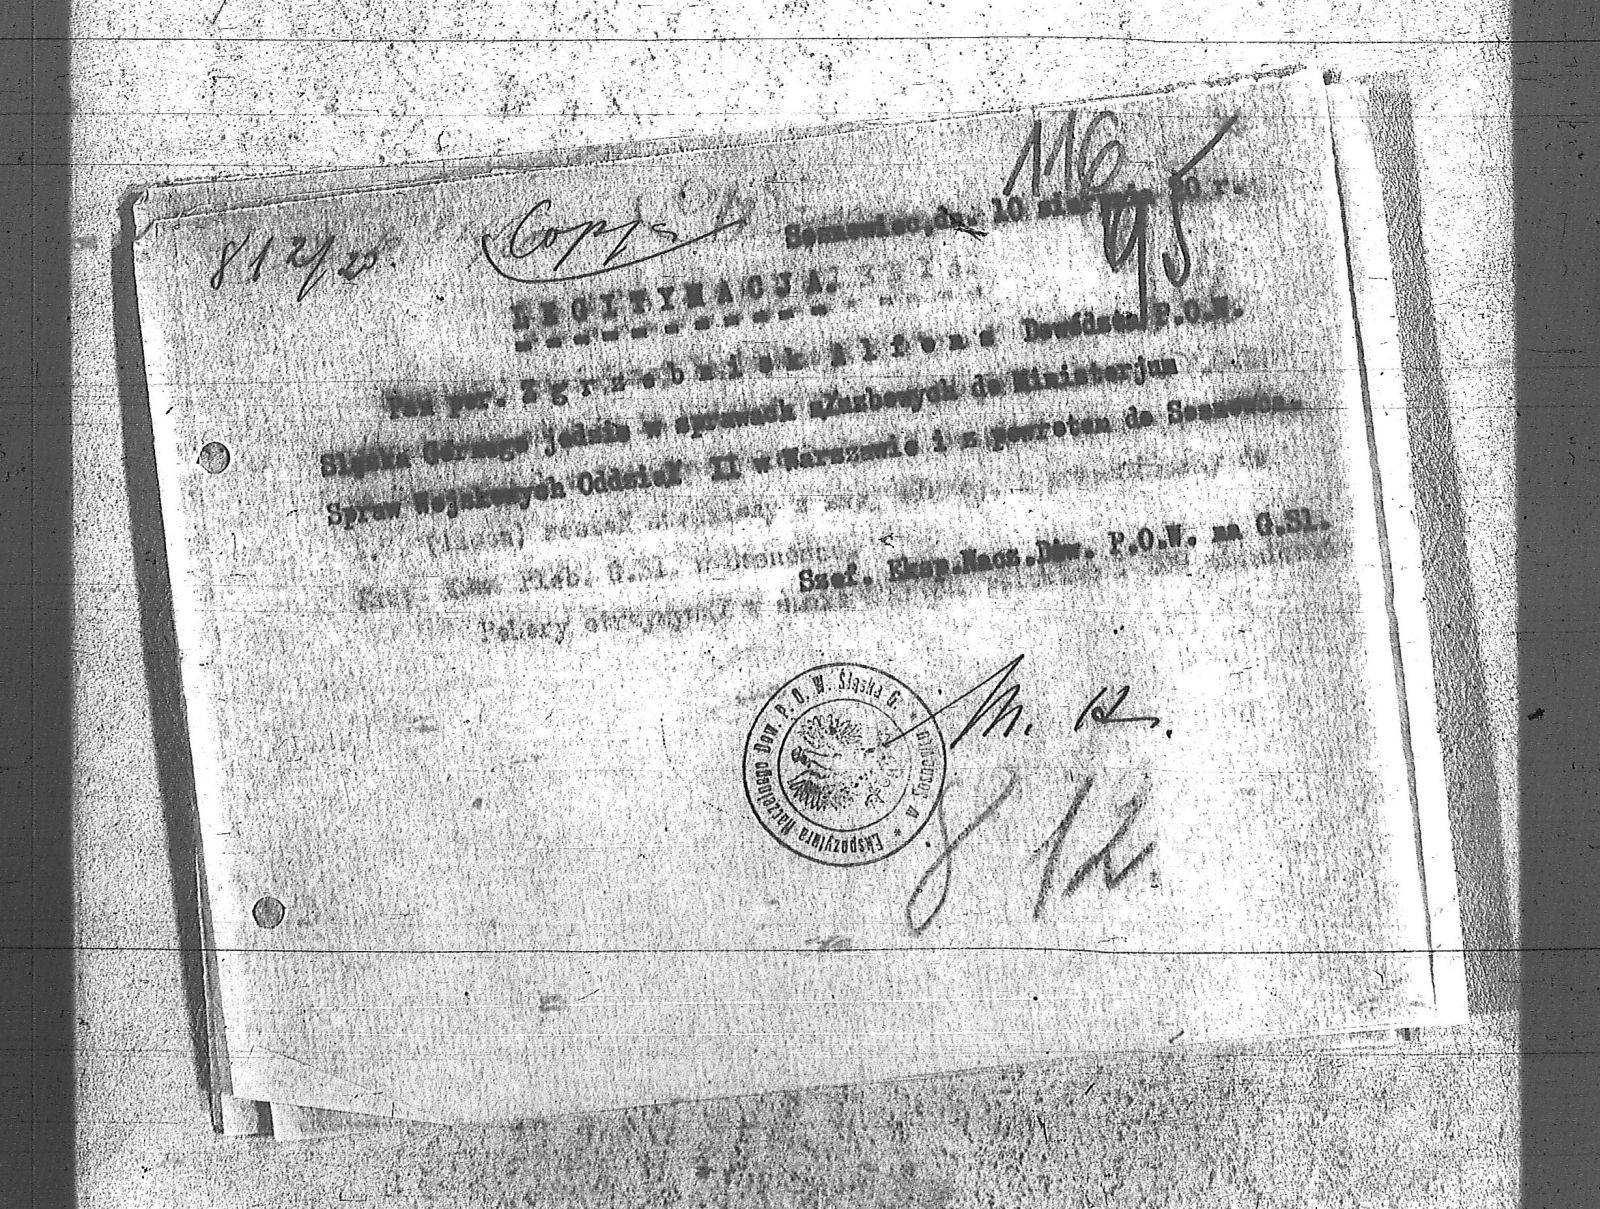 116
95
812/20.
Copja
Sosnowiec,dn. 10 sierpnia 20 r.
LEGITYMACJA.
Pan por. Zgrzebniok Alfons Dowództa P.O.W.
Śląska Górnego jedzie w sprawach służbowych do Ministerjum
Spraw Wojskowych Oddział II w Warszawie i z powrotem do Sosnowca.
Szef. Eksp.Nacz.Dów. P.O.W. na G.Sl.
Pobory otrzymywał
M. K.
Ekspozytura Naczelnego Dow. P. O. W. Śląska G.
812.